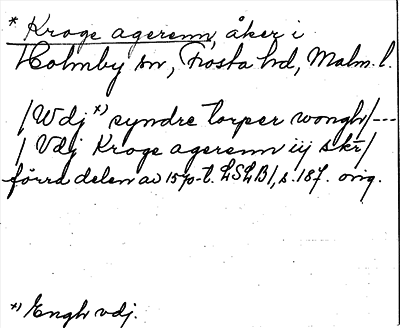 * Kroge agerenn, åker i
Holmby sn, Frosta hd, Malm. l.
/Wdj *) syndre torper wongh/---
/ Vdj Kroge agerenn iij skr/
förra delen av 1570-t. LSLB1, s. 187. orig.
*) Engh vdj.